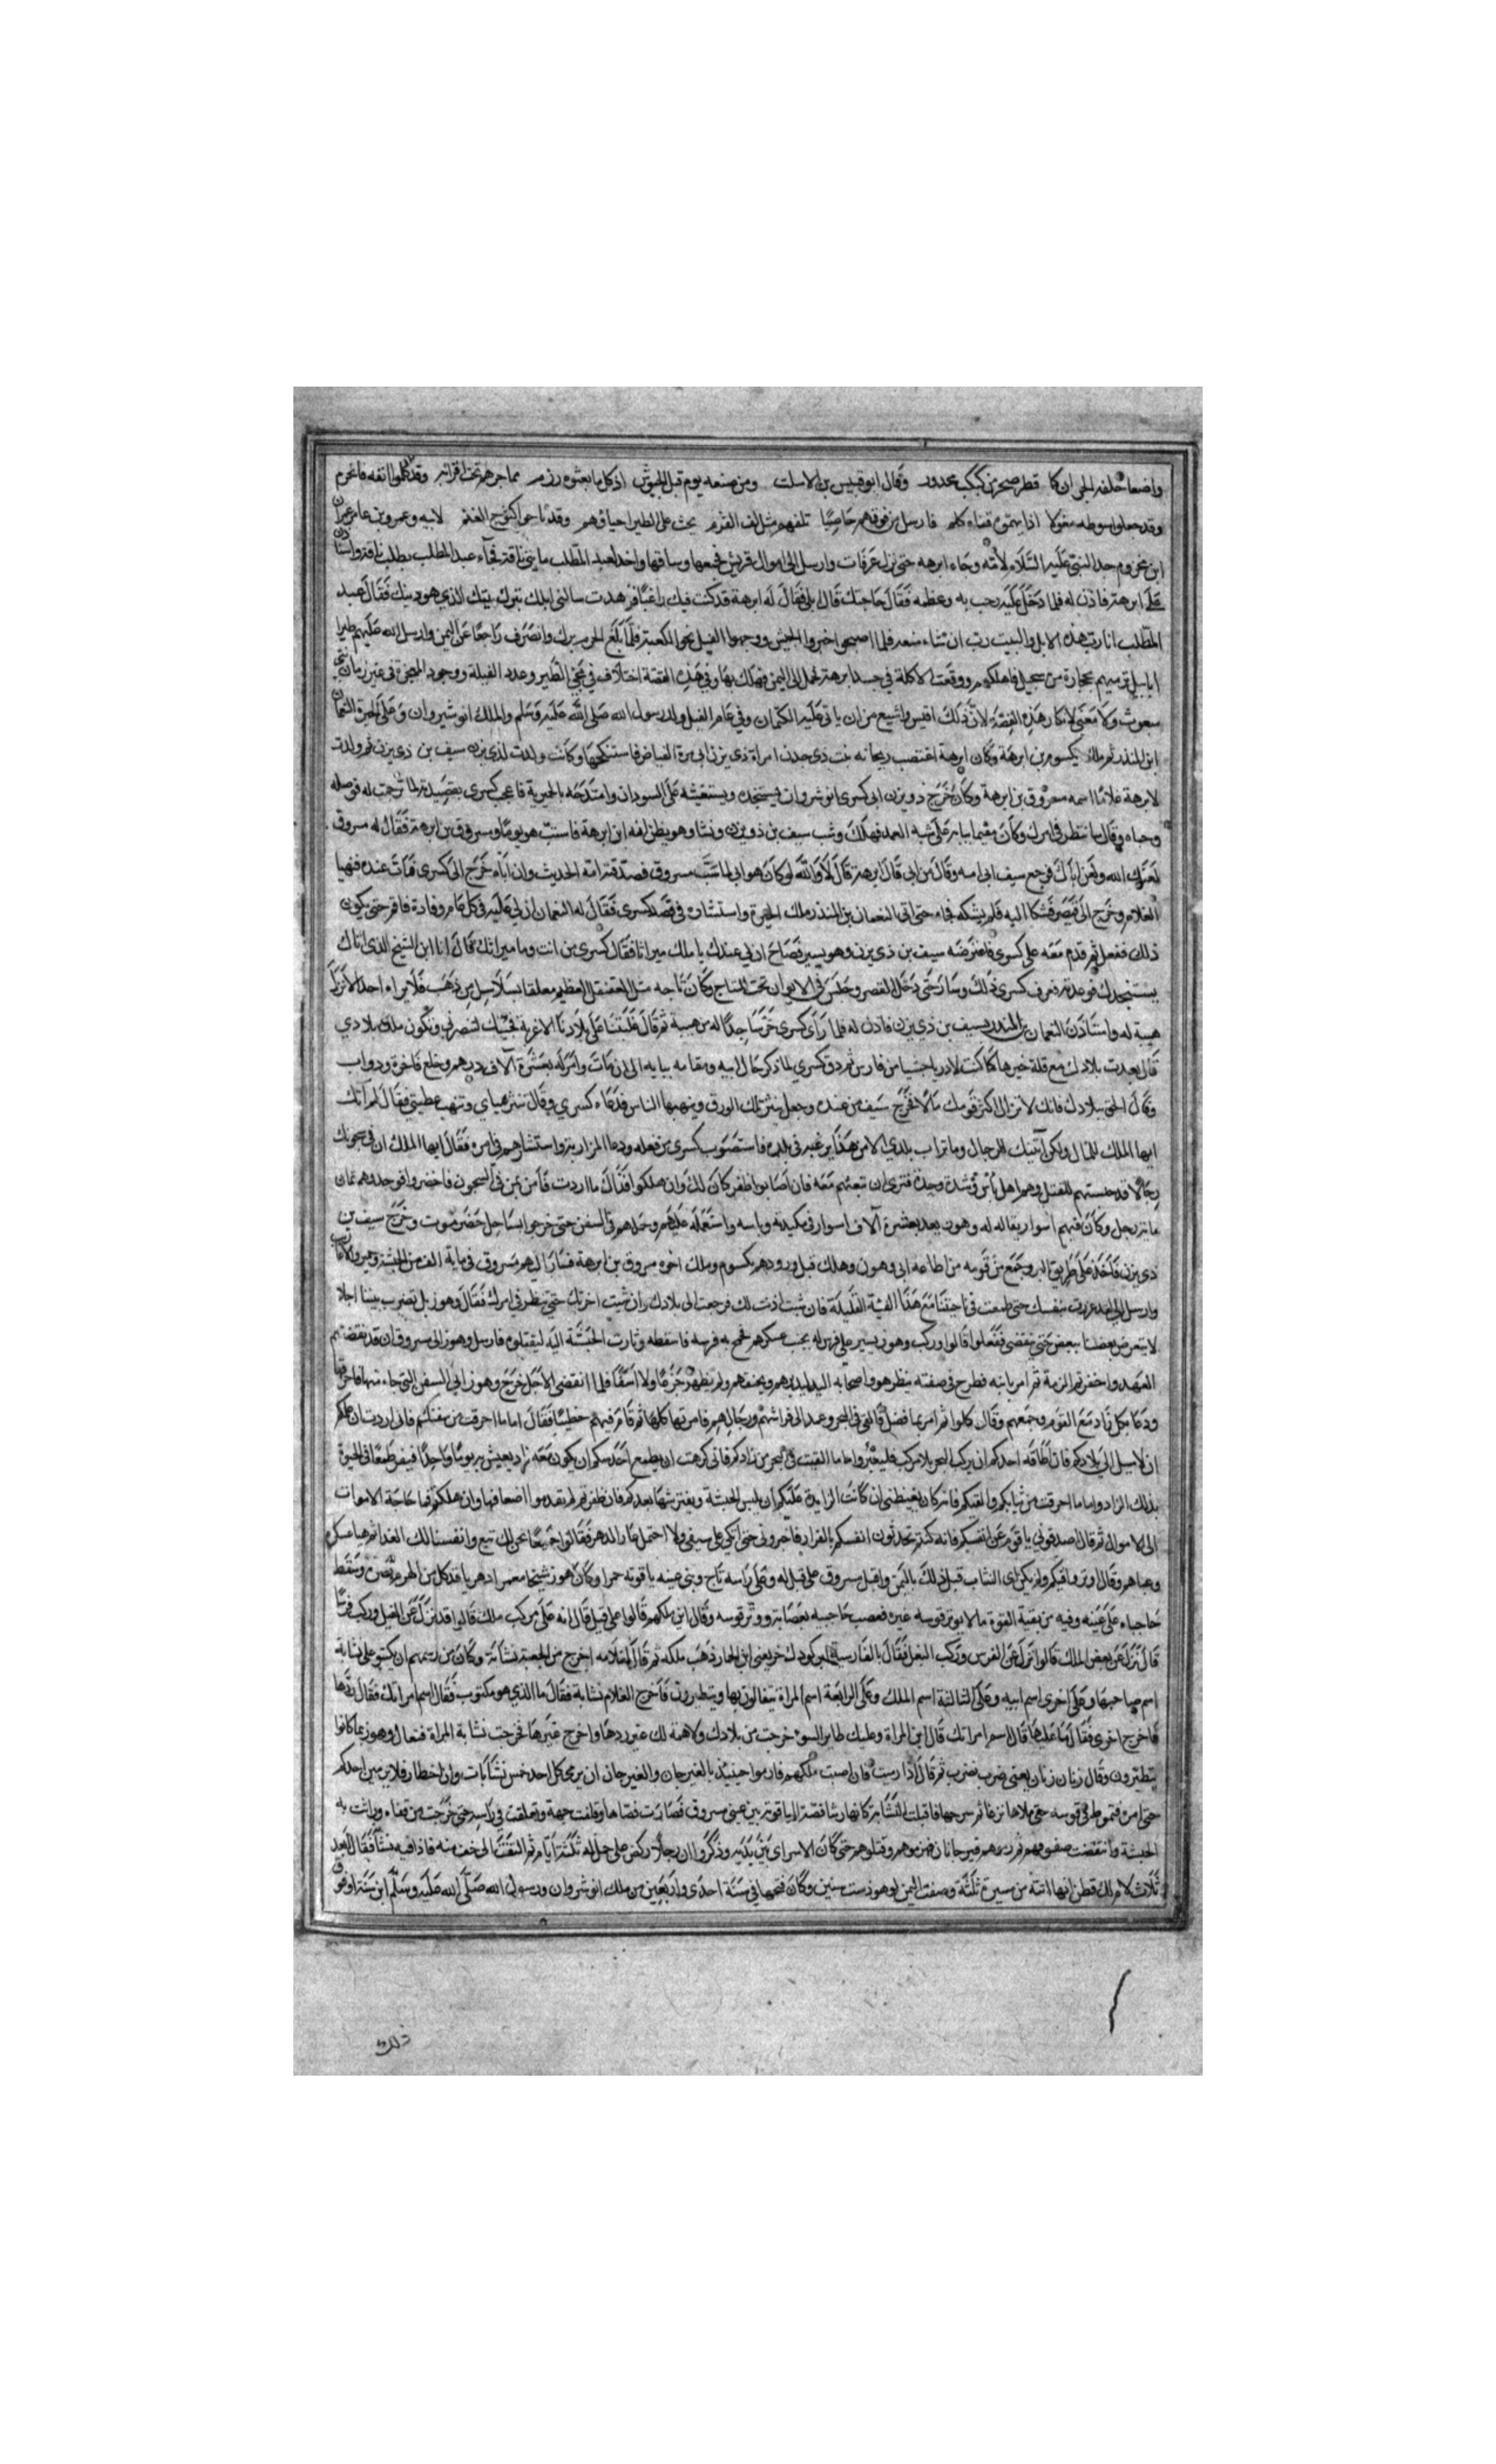 واضعا حلقه الجران كما قطر صخر من كبكب محدور وقال ابو قيس بن الاسلت ومن صنعه يوم فيل الحبوش اذ كل ما بعثوه رزم محاجنهم تحت اقرابه وقد كلموا انفه فانخرم
وقد جعلوا سوطه مغولا اذا يمموه قفاه كلم فارسل من فوقهم حاصبا تلفهم مثل لف القزم يحث على الطير احبارهم وقد ثاجوا كثؤاج الغنم لابيه وعمرو بن عامر بن عمران
ابن مخزوم جد النبي عليه السلام لامه وجاء ابرهه حتى نزل عرفات وارسل الى اموال قريش فجمعها وساقها واخذ لعبد المطلب مايتي ناقة فجاء عبد المطلب يطلب ناقته واستاذن
على ابرهة فاذن له فلما دخل عليه رحب به وعظمه فقال حاجتك قال ابلي فقال له ابرهة قد كنت فيك راغبا فزهدت سالتني ابلك وتترك بيتك الذي هو دينك فقال عبد
المطلب انا رب هذه الابل وللبيت رب ان شاء منعه فلما اصبحوا اخبروا الجيش ووجهوا الفيل نحو الكعبة فلما بلغ الحرم برك وانصرف راجعا نحو اليمن وارسل الله عليهم طيرا
ابابيل ترميهم بحجارة من سجيل فاهلكهم ووقعت الاكلة في جسد ابرهة فحمل الى اليمن فهلك بها وفي هذه القصة اختلاف في مجئ الطير وعدد الفيلة ووجود المعجزة في غير زمان نبي
مبعوث ولا معنى لانكار هذه القصة لان ذلك اقيس واشيع من ان ياتي عليه الكتمان وفي عام الفيل ولد رسول الله صلى الله عليه وسلم والملك انوشيروان وعلى الحيرة النعمان
ابن المنذر ثم ملك يكسوم بن ابرهة وكان ابرهة اغتصب ريحانه بنت ذي جدن امراة ذي يزن ابي مرة الفياض فاستنكحها وكانت ولدت لذي يزن سيف بن ذي يزن ثم ولدت
لابرهة غلاما اسمه مسروق بن ابرهة وكان خرج ذو يزن الى كسرى انوشروان يستنجده ويستغيثه على السودان وامتدحه بالحميرية فاعجب كسرى بقصيدته لما ترجمت له فوصله
وحباه وقال سانظر في امرك وكان مقيما ببابه على شبه العمد فهلك وشب سيف بن ذو يزن ونشا وهو يظن انه ابن ابرهة فاستب هو يوما ومسروق بن ابرهة فقال له مسروق
لعنك الله ولعن اباك فرجع سيف الى امه وقال من ابي قال ابرهة قال لا والله لو كان هو ابي لما سبني مسروق فصدقته امه الحديث وان اباه خرج الى كسرى فمات عنده فتهيا
الغلام وخرج الى قيصر فشكا اليه فلم يشكه فجاء حتى اتى النعمان بن المنذر ملك الحيرة واستشاره في قصد كسرى فقال له النعمان ان لي عليه في كل عام وفادة فاقم حتى يكون
ذلك ففعل ثم قدم معه على كسرى فاعترضه سيف بن ذي يزن وهو يسير فصاح ان لي عندك يا ملك ميراثا فقال كسرى من انت وما ميراثك قال انا ابن الشيخ الذي اتاك
يستنجدك فوعدته فعرف كسرى ذلك وسار حتى دخل القصر وجلس في الايوان تحت التاج وكان تاجه مثل القنقل العظيم معلقا بسلاسل من ذهب فلا يراه احد الا نزل
هيبة له واستاذن النعمان بن المنذر لسيف بن ذي يزن فاذن له فلما راى كسرى خر ساجدا له من هيبة ثم قال غلبتنا على بلادنا الاغربة فجئتك لتنصرني وتكون ملك بلادي
قال بعدت بلادك مع قلة خيرها وما كنت لادر باحبشيا من فارس ثم رق كسرى لما ذكر حال ابيه ومقامه ببابه الى ان مات وامر له بعشرة آلاف درهم وخلع فاخرة ودواب
وقال الحق ببلادك فانك لا تزال اكثر قومك مالا فخرج سيف من عنده وجعل ينثر تلك الورق وينهبها الناس فدعاه كسرى وقال تنثر حباي وتنهب عطيتي فقال لم آتك
ايها الملك للمال ولكن آتيتك للرجال وما تراب بلدي الا من هذا يرغبه في بلده فاستصوب كسرى من فعله ودعا المرازبة واستشارهم في امره فقال ايها الملك ان في سجونك
رجالا قد حبستهم للقتل وهم اهل باس وشدة وحدة فنرى ان تبعثهم معه فان اصابوا ظفرا كان لك وان هلكوا فذاك ما اردت فامر بمن في السجون فاحضروا فوجدوهم ثمان
مايه رجل وكان فيهم اسوار يقال له وهرز يعد بعشرة آلاف اسوار في مكيدته وباسه واستعمله عليهم وحملهم في السفن حتى خرجوا بساحل حضرموت وخرج سيف بن
ذي يزن فاخذ على طريق البر وجمع من قومه من اطاعه الى وهرز وهلك قبل ورودهم يكسوم وملك اخوه مسروق بن ابرهة فسار اليهم مسروق في ماية الف من الحبشة وحمير والاعراب
وارسل الى وهرز غررت بنفسك حتى طمعت في ناحيتنا مع هذا الفئة القليلة فان شئت اذنت لك فرجعت الى بلادك وان شئت اخرتك حتى تنظر في امرك فقال وهرز بل تضرب بيننا اجلا
لا يتعرض بعضنا ببعض حتى تنقضي ففعلوا قالوا وركب وهرز يسير على فرس له بجنب عسكرهم فجمح به فرسه فاسقطه وثارت الحبشة اليه ليقتلوه فارسل وهرز الى مسروق ان قد نقضتم
العهد واخفرتم الذمة ثم امر بابنه فطرح في صفته ينظر هو واصحابه اليه ليذمرهم ويحنقهم ولم يظهر جزعا ولا اسفا فلما انقضى الاجل خرج وهرز الى السفن التي جاء منها فاحرقها
ودعا بكل زاد مع القوم وجمعهم وقال كلوا ثم امر بما فضل فالقى في البحر وعمد الى فراشهم ورحالهم فامر بها كلها ثم قام فيهم خطيبا فقال اما ما احرقت من سفنكم فاني اردت ان اعلمكم
ان لا سبيل الى بلادكم فان اطاقه احدكم ان يركب البحر بلا مركب فليعبر واما ما القيت في البحر من زادكم فاني كرهت ان يطمع احدكم ان يكون معه زاد يعيش به يوما واحدا فيفر طمعا في الحيوة
بذلك الزاد واما ما احرقت من ثيابكم والقيتكم فانه كان يغيظني ان كانت الدايرة عليكم ان يلبس الحبشة ويفترشها بعدكم فان ظفرتم لم تعدموا اضعافها وان هلكتم فما حاجة الاموات
الى الاموال ثم قال اصدقوني يا قوم عن انفسكم فانه كنتم تحدثون انفسكم بالفرار فاخبروني حتى اتكئ على سيفي ولا احتمل عار الدهر فقالوا جميعا نحن لك تبع وانفسنا لك الفدا ثم هيا عسكره
وعباهم وقال اوتروا قسيكم ولم يكن راى النشاب قبل ذلك باليمن واقبل مسروق على فيل له وعلى راسه تاج وبين عينه ياقوته حمرا وكان وهرز شيخا معمرا دهريا قد كل من الهرم بصره وسقط
حاجباه على عينه وفيه من بقية القوة ما لا يوتر قوسه غيره فعصب حاجبيه بعصابة ووتر قوسه وقال اين ملكهم قالوا على فيل قال انه على مركب ملك قالوا قد نزل عن الفيل وركب فرسا
قال نزل عن بعض الملك قالوا نزل عن الفرس وركب البغل فقال بالفارسية اين كودك خر يعني ابن الحمار ذهب ملكه ثم قال لغلامه اخرج من الجعبة نشابة وكان من رسمهم ان يكتبوا على نشابة
اسم صاحبها وعلى اخرى اسم ابيه وعلى الثالثة اسم الملك وعلى الرابعة اسم المراة يتفالون بها ويتطيرون فاخرج الغلام نشابة فقال ما الذي هو مكتوب فقال اسم امراتك فقال ردها
فاخرج اخرى فقال ما عليها قال اسم امراتك قال ابن المراة وعليك طاير السوء خرجت من بلادك ولا همة لك غير ردها واخرج غيرها فخرجت نشابة المراة فتفال وهرز بما كانوا
يتطيرون وقال زنان زنان يعني ضرب نضرب ثم قال اذا رميت فان اصبت ملكهم فارموا حينئذ بالفنرجان والفنرجان ان يرمى كل احد خمس نشابات وان اخطات فلا يرمين احدكم
حتى آمره ثم مط في قوسه حتى ملاها نزعا ثم سرحها فاقبلت النشابة كانها رشا فصكت الياقوتة بين عيني مسروق فصارت فضاضا وفلقت جبهته وتعلقت في راسه حتى خرجت من قفاه ودارت به
الحبشة وانتقضت صفوفهم ثم رموهم فهزموهم وقتلوهم حتى كان الاسرى بين يديه وذكروا ان رجلا ركض على جمل له ثلثة ايام ثم التفت الى خف منه فاذا فيه نشابة فقال البعد
ثلاث لام لك فظن انها اتته من مسيرة ثلثة وصفت اليمن لوهرز ست سنين وكان فتحها في سنة احدى واربعين من ملك انوشروان ورسول الله صلى الله عليه وسلم ابن سنة او فوق
ذلك